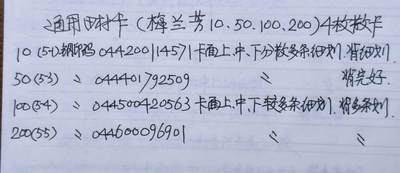 通用田村卡(梅兰芳10.50.100.200)4枚散卡
10(5-1)编码044200114571卡面上.中.下分散多条细划.背细划.
50(53) 〃 044401792509 〃 背完好.
100(54) 〃 044500420563卡面上.中.下较多条细划.背多条划.
200(55) 〃 044600096901 〃 〃